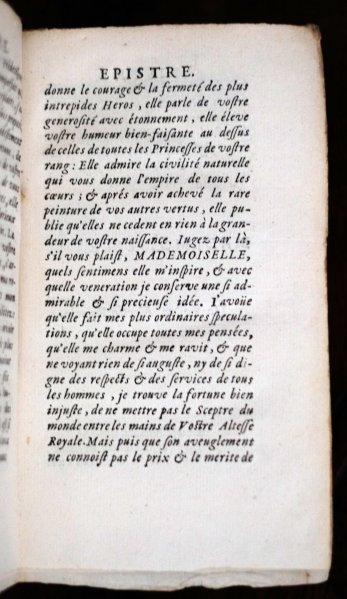 EPISTRE.
donne le courage & la fermeté des plus
intrepides Heros, elle parle de vostre
generosité avec étonnement, elle éleve
vostre humeur bien-faisante au dessus
de celles de toutes les Princesses de vostre
rang: Elle admire la civilité naturelle
qui vous donne l'empire de tous les
cœurs; & aprés avoir achevé la rare
peinture de vos autres vertus, elle pu-
blie qu'elles ne cedent en rien à la gran-
deur de vostre naissance. Iugez par là,
s'il vous plaist, MADEMOISELLE,
quels sentimens elle m'inspire, & avec
quelle veneration je conserve une si ad-
mirable & si precieuse idée. I'avoüe
qu'elle fait mes plus ordinaires specula-
tions, qu'elle occupe toutes mes pensées,
qu'elle me charme & me ravit, & que
ne voyant rien de si auguste, ny de si di-
gne des respects & des services de tous
les hommes, je trouve la fortune bien
injuste, de ne mettre pas le Sceptre du
monde entre les mains de Vostre Altesse
Royale. Mais puis que son aveuglement
ne connoist pas le prix & le merite de